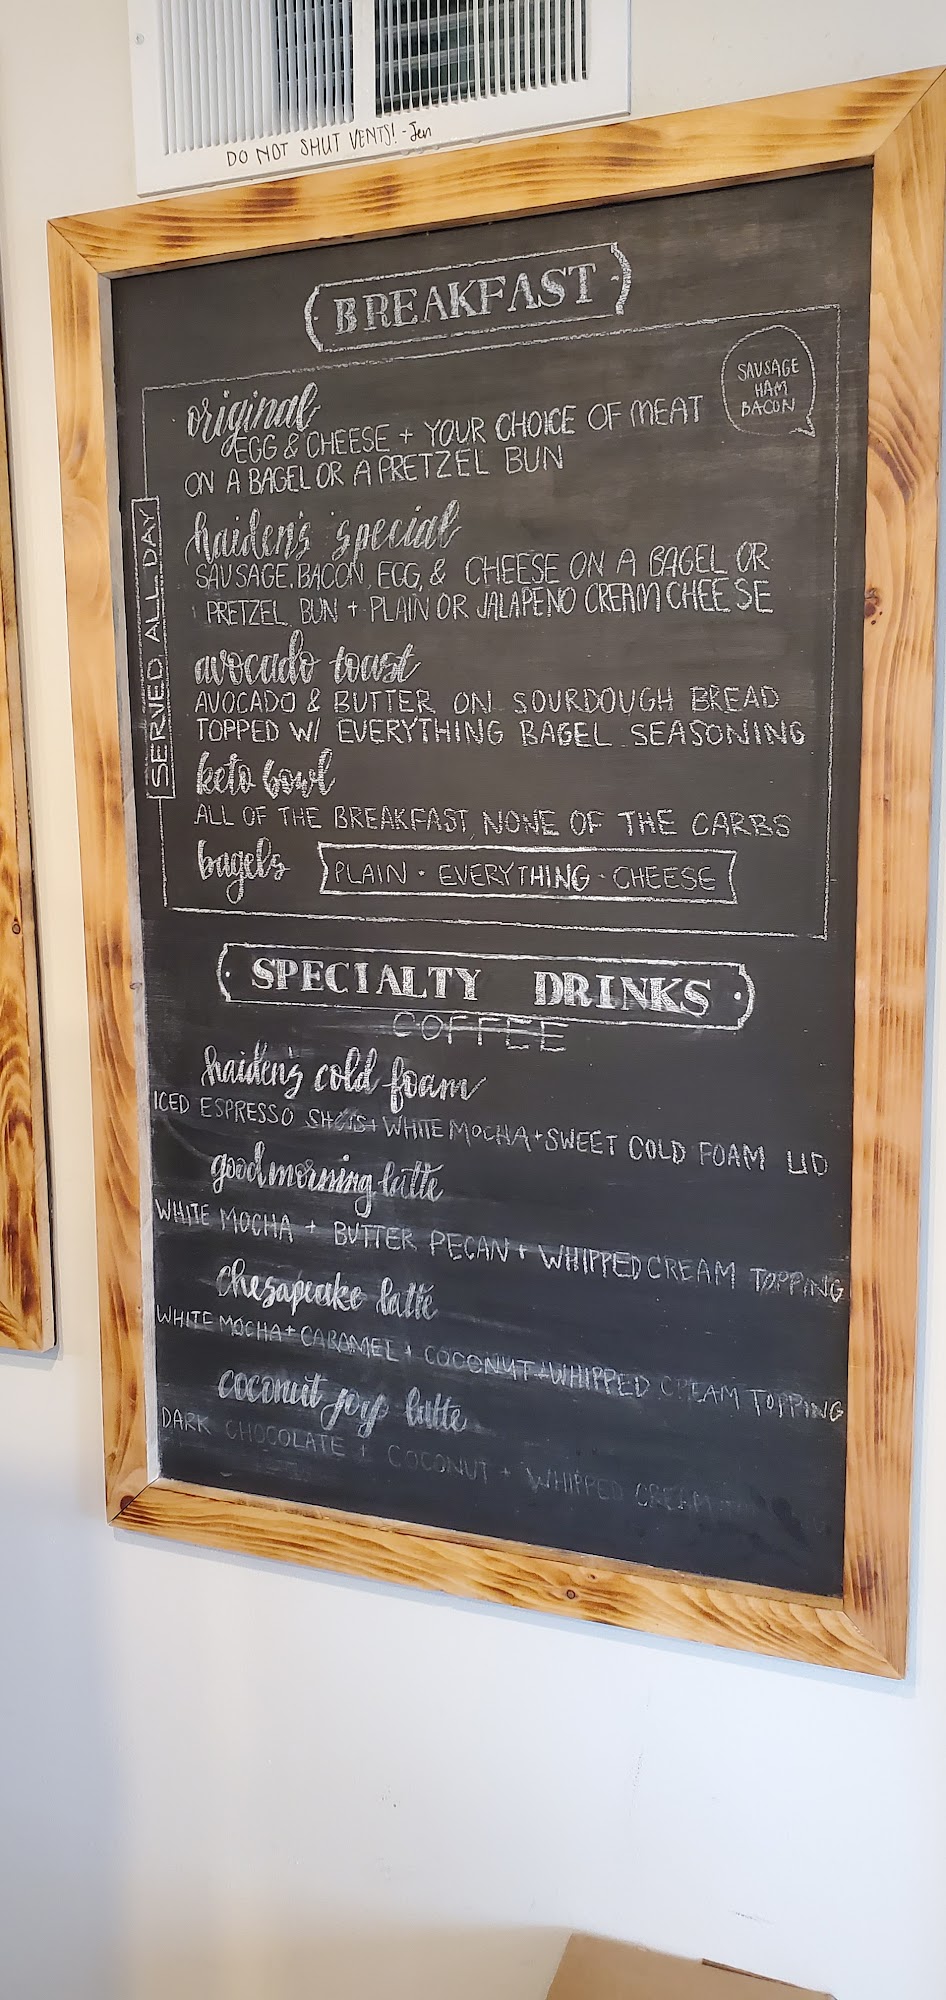 DO NOT SHUT VENTS! -Jen
BREAKFAST
original
EGG & CHEESE + YOUR CHOICE OF MEAT
ON A BAGEL OR A PRETZEL BUN
SAUSAGE
HAM
BACON
SERVED ALL DAY
haiden's special
SAUSAGE, BACON, EGG, & CHEESE ON A BAGEL OR
PRETZEL BUN + PLAIN OR JALAPENO CREAM CHEESE
avocado toast
AVOCADO & BUTTER ON SOURDOUGH BREAD
TOPPED W/ EVERYTHING BAGEL SEASONING
keto bowl
ALL OF THE BREAKFAST, NONE OF THE CARBS
bagels PLAIN · EVERYTHING · CHEESE
SPECIALTY DRINKS
COFFEE
haiden's cold foam
ICED ESPRESSO SHOTS + WHITE MOCHA + SWEET COLD FOAM LID
good morning latte
WHITE MOCHA + BUTTER PECAN + WHIPPED CREAM TOPPING
chesapeake latte
WHITE MOCHA + CARAMEL + COCONUT + WHIPPED CREAM TOPPING
coconut joy latte
DARK CHOCOLATE + COCONUT + WHIPPED CREAM